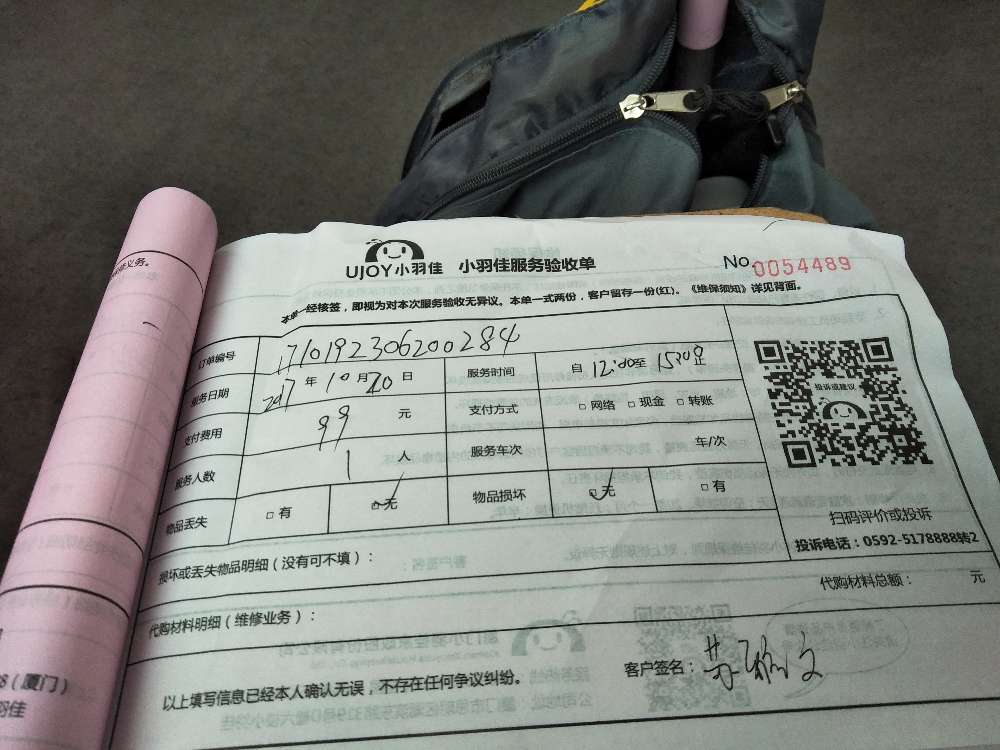 UJOY小羽佳 小羽佳服务验收单 No.0054489
本单一经核签，即视为对本次服务验收无异议。本单一式两份，客户留存一份(红)。《维保须知》详见背面。
订单编号 1710192306200284
服务日期 2017年10月20日 服务时间 自12:00至15:00止
支付费用 99元 支付方式 □网络 □现金 □转账
服务人数 1人 服务车次 车/次
物品丢失 □有 □无 物品损坏 □无 □有
投诉或建议
扫码评价或投诉
投诉电话：0592-5178888转2
损坏或丢失物品明细（没有可不填）：
代购材料总额： 元
代购材料明细（维修业务）：
以上填写信息已经本人确认无误，不存在任何争议纠纷。 客户签名：
务。
8（厦门）
羽佳